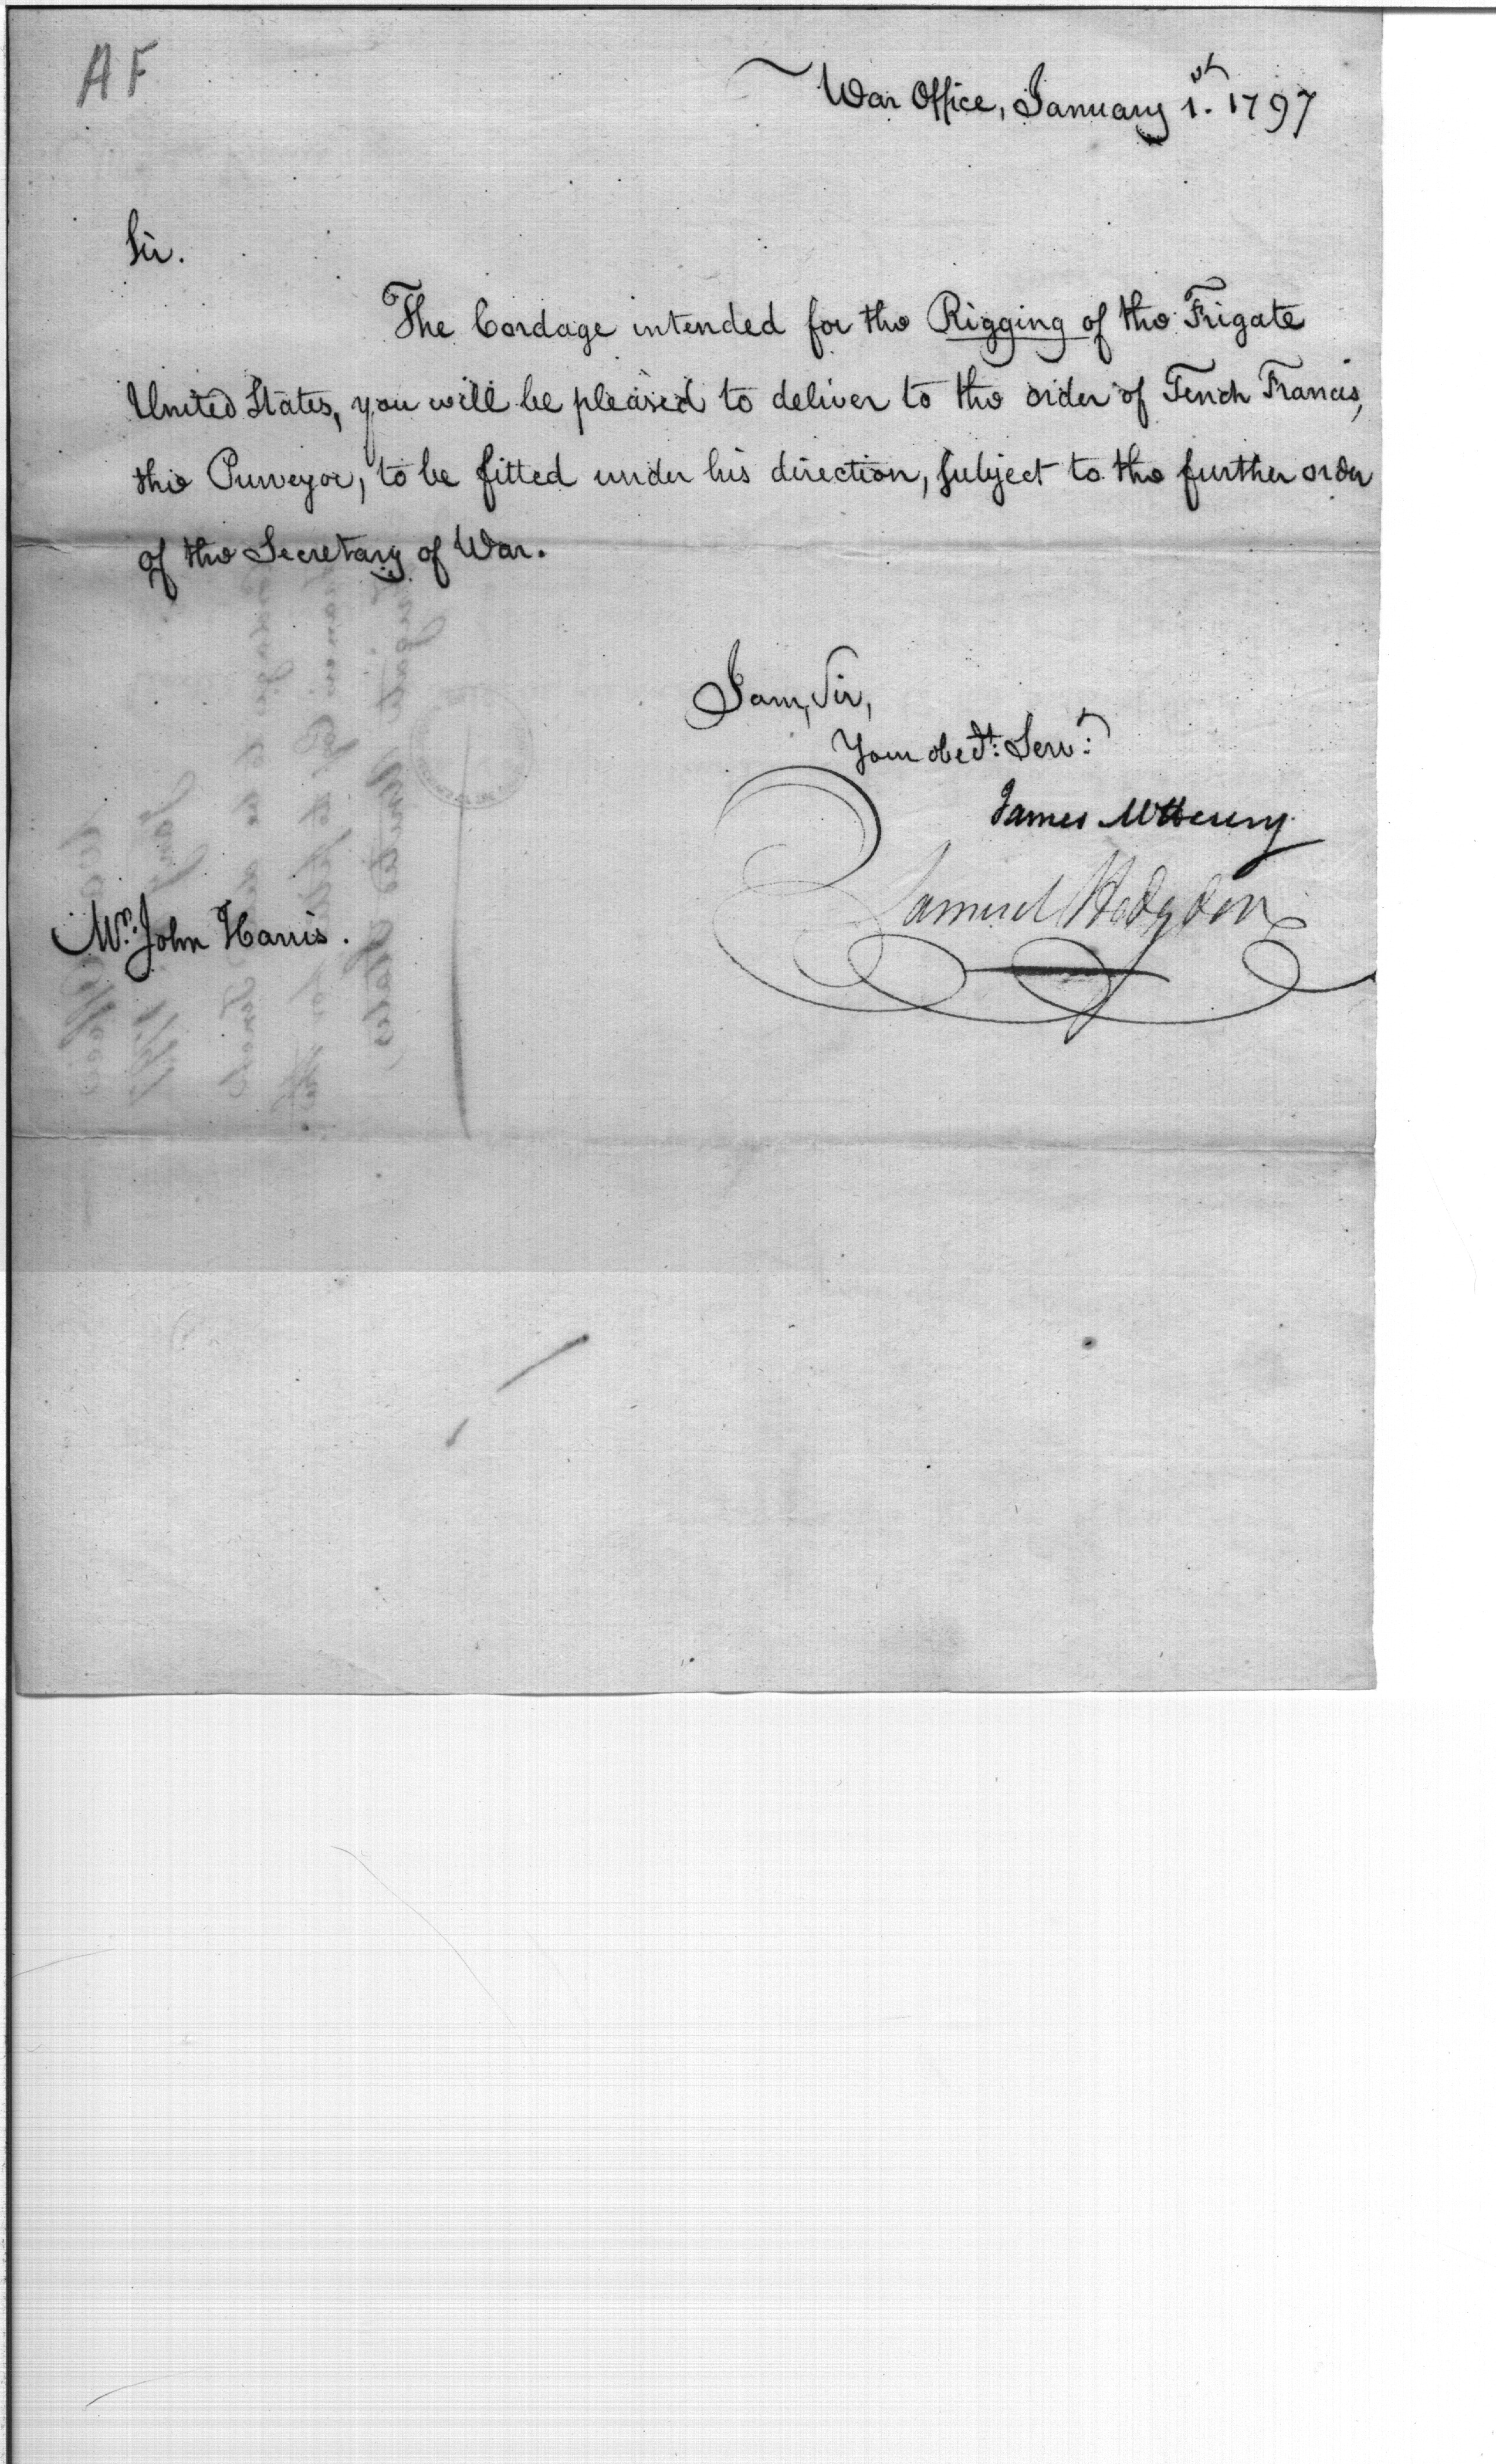 AF
War Office, January 1st. 1797
Sir.
The Cordage intended for the Rigging of the Frigate
United States, you will be pleased to deliver to the order of Tench Francis,
the Purveyor, to be fitted under his direction, subject to the further order
of the Secretary of War.
I am, Sir,
Your obedt: Servt:
James McHenry
Samuel Hodgdon
Mr. John Harris.